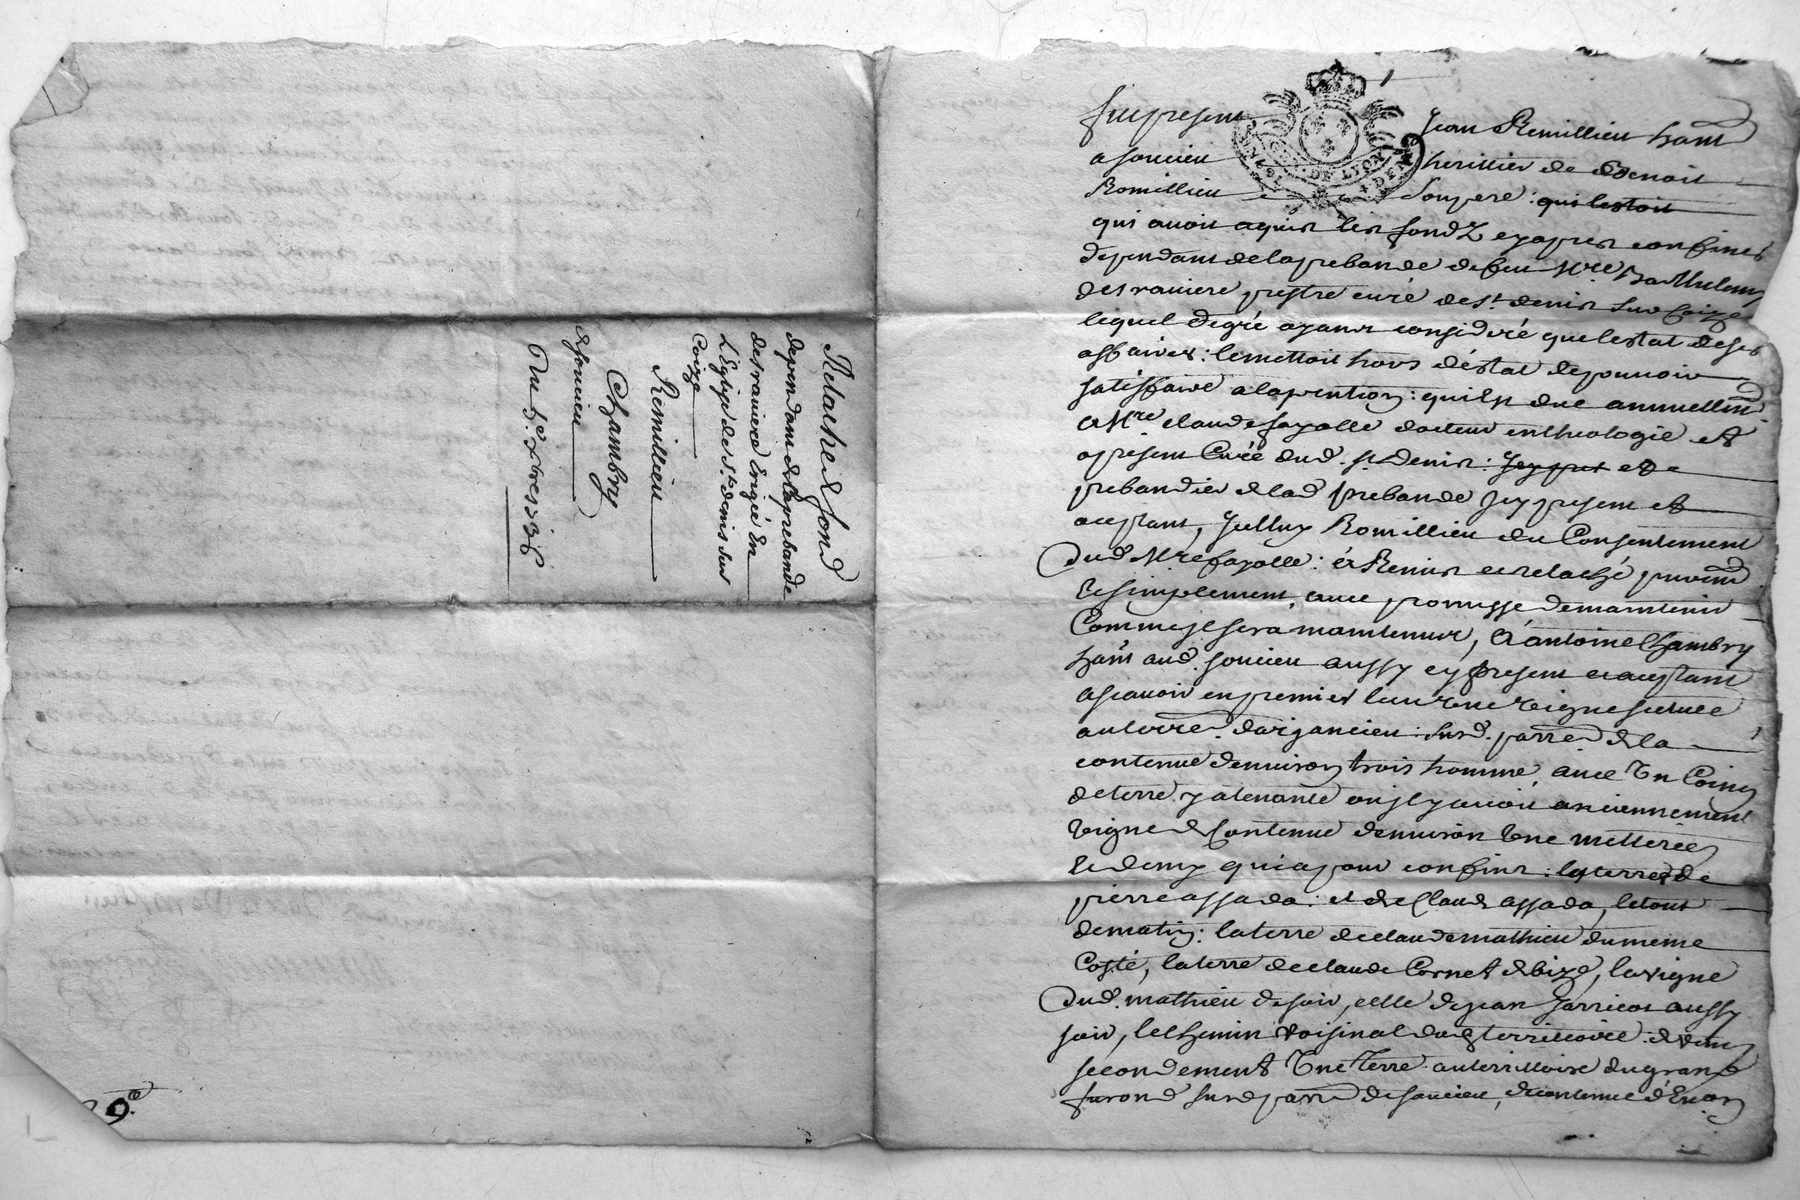 Relache de fond
dependant de la prebande
des raviere Erigée En
L'Eglize de St denis sur
Coize
Remillieu
Chambry
de soucieu
Du 5e xbre 1736
9e
GEN. DE LYON
fut present Jean Remillieu hant
a soucieu heritier de Benoit
Romillieu son pere : qui lestoit
qui avoit aquis les fondz cy apres confines
dependant de la prebande de feu Mre Barthelemy
des raviere prestre curé de st denis sur Coize
lequel de gré ayant consideré que lestat de ses
affaires : le mettoit hors d'éstat de pouvoir
satisfaire a la pention : qu'il est due annuellmt
a Mre claude fayolle docteur en theologie et
a present Curé dud. st denis : Jcy pnt et de
prebandier de lad prebande Jcy present et
aceptant, Jcelluy Romillieu du Consentement
dud Mre fayolle : a Remis et relaché puremt
et simplement, avec promesse de maintenir
Comme jl sera maintenur, a antoine Chambry
hant aud. soucieu aussy cy present et aceptant
ascavoir en premier lieu une vigne scituée
au terre. d'arjancieu : surd. parre de la
contenue d'environ trois homme, avec un Coing
de terre y atenante ou jl y avoit anciennement
vigne de Contenue d'environ une metterée
et demy qui a pour confins : la terre de
pierre assada : et de Claude assada, le tout
de matin : la terre de claude mathieu du meme
Costé, la terre de claude Cornet de bize, la vigne
dud. mathieu de soir, celle de jean Jarricot aussy
soir, le chemin voisinal dud territioire : de vent
secondement Une Terre au territtoire du grand
furon sur de parre de soucieu, de contenue d'Environ